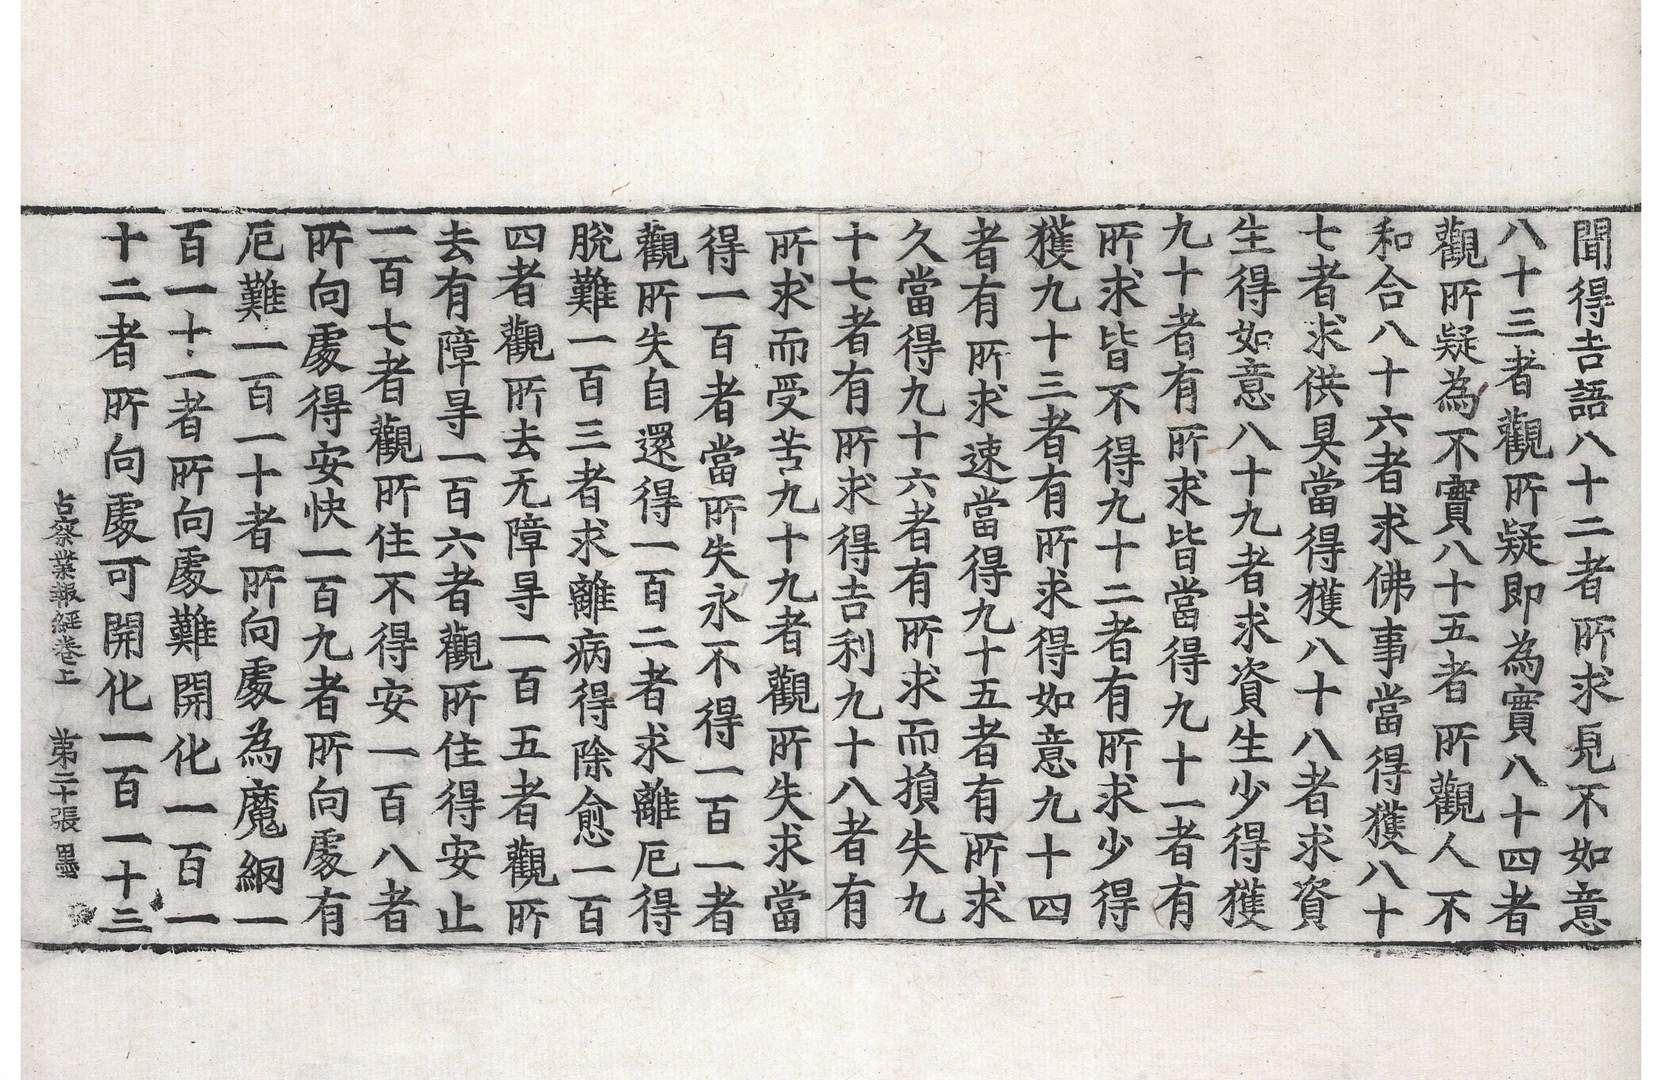 聞得吉語八十二者所求見不如意
八十三者觀所疑即為實八十四者
觀所疑為不實八十五者所觀人不
和合八十六者求佛事當得獲八十
七者求供具當得獲八十八者求資
生得如意八十九者求資生少得獲
九十者有所求皆當得九十一者有
所求皆不得九十二者有所求少得
獲九十三者有所求得如意九十四
者有所求速當得九十五者有所求
久當得九十六者有所求而損失九
十七者有所求得吉利九十八者有
所求而受苦九十九者觀所失求當
得一百者當所失永不得一百一者
觀所失自還得一百二者求離厄得
脫難一百三者求離病得除愈一百
四者觀所去无障㝵一百五者觀所
去有障㝵一百六者觀所住得安止
一百七者觀所住不得安一百八者
所向處得安快一百九者所向處有
厄難一百一十者所向處為魔網一
百一十一者所向處難開化一百一
十二者所向處可開化一百一十三
占察業報經卷上　第二十張　墨